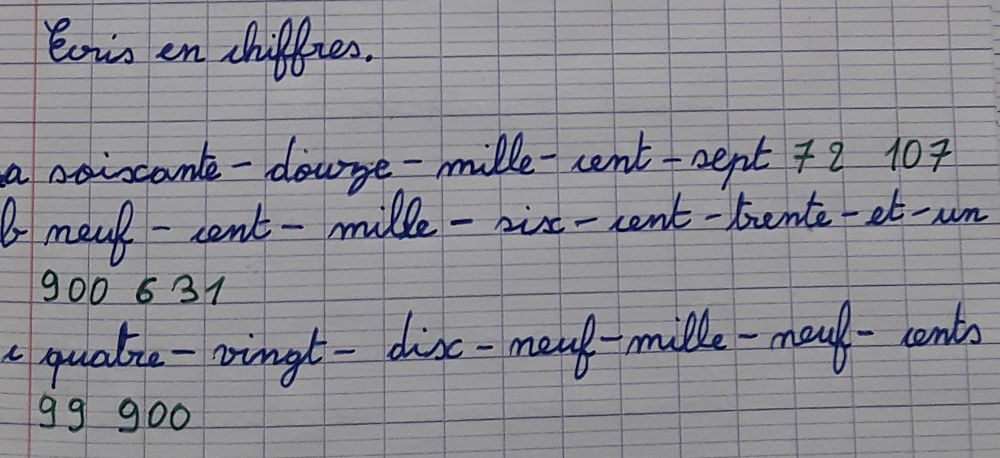 Ecris en chiffres.
a soixante - douze - mille - cent - sept 72 107
b neuf - cent - mille - six - cent - trente - et - un
900 631
c quatre - vingt - dix - neuf - mille - neuf - cents
99 900